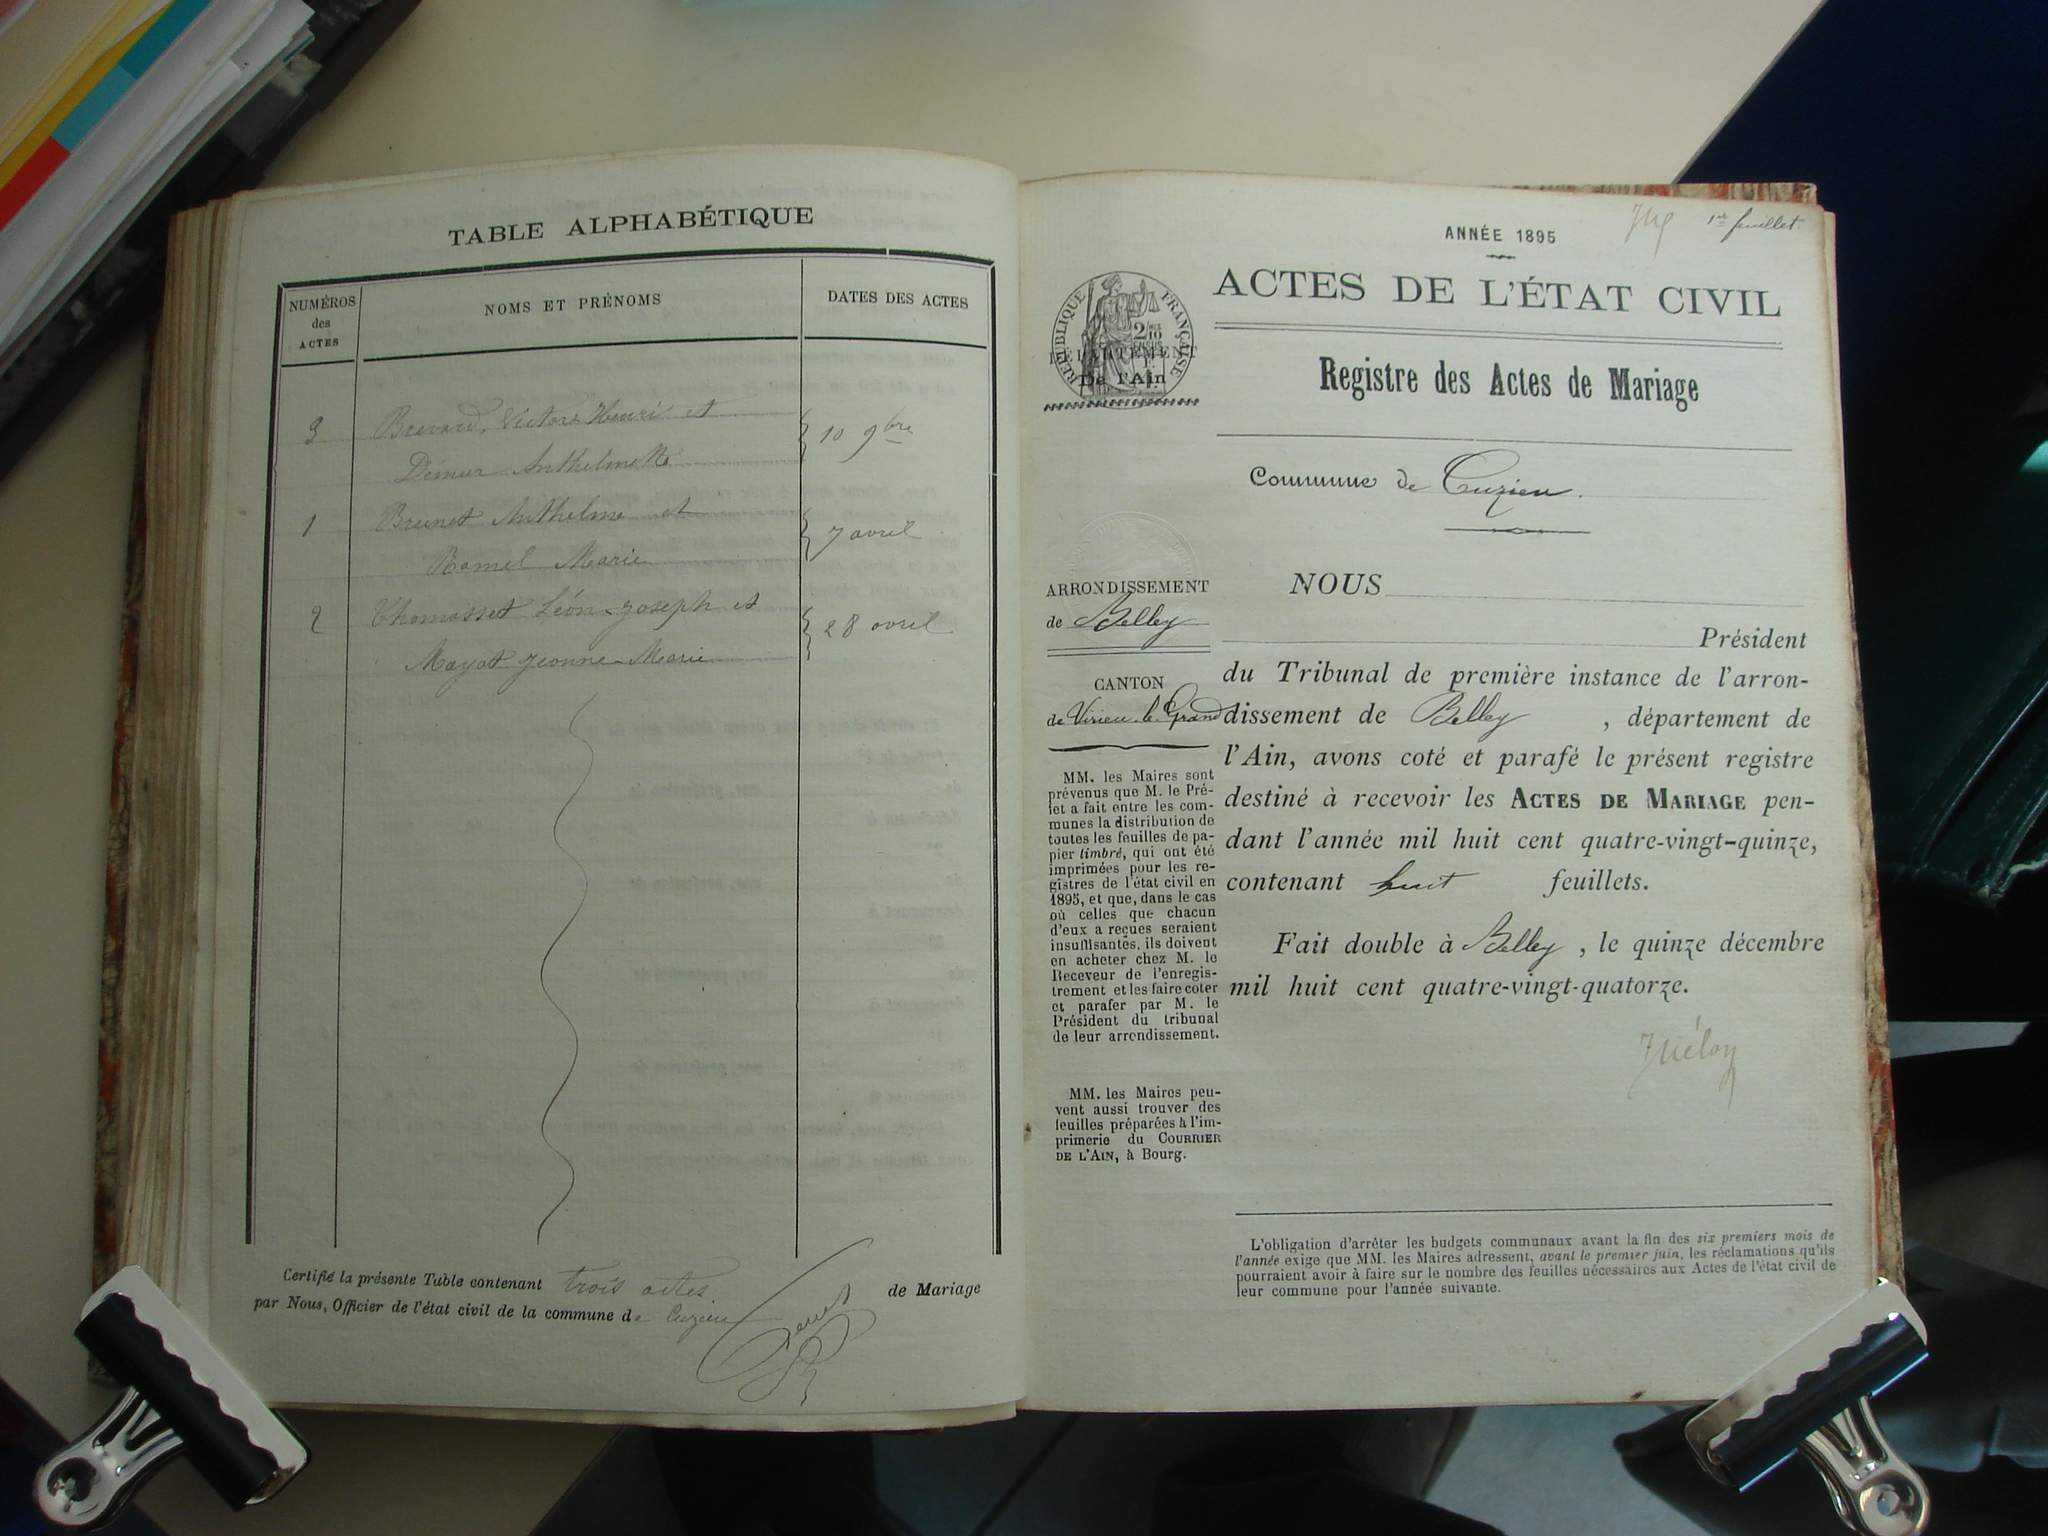 TABLE ALPHABÉTIQUE
NUMÉROS
des
ACTES
NOMS ET PRÉNOMS
DATES DES ACTES
3 Brevard, Victor Henri et
10 9bre
Démur Anthelmette
1 Brunet Anthelme et
7 avril
Ramel Marie
2 Thomasset Léon-Joseph et
28 avril
Mayot Jeanne-Marie
Certifié la présente Table contenant trois actes de Mariage
par Nous, Officier de l'état civil de la commune de Cuzieu
1er feuillet.
ANNÉE 1895
ACTES DE L'ÉTAT CIVIL
RÉPUBLIQUE FRANÇAISE
DÉPARTEMENT
De l'Ain
Registre des Actes de Mariage
Commune de Cuzieu.
ARRONDISSEMENT
de Belley
CANTON
de Virieu-le-Grand
MM. les Maires sont
prévenus que M. le Pré-
fet a fait entre les com-
munes la distribution de
toutes les feuilles de pa-
pier timbré, qui ont été
imprimées pour les re-
gistres de l'état civil en
1895, et que, dans le cas
où celles que chacun
d'eux a reçues seraient
insuffisantes, ils doivent
en acheter chez M. le
Receveur de l'enregis-
trement et les faire coter
et parafer par M. le
Président du tribunal
de leur arrondissement.
MM. les Maires peu-
vent aussi trouver des
feuilles préparées à l'im-
primerie du COURRIER
DE L'AIN, à Bourg.
NOUS
Président
du Tribunal de première instance de l'arron-
dissement de Belley, département de
l'Ain, avons coté et parafé le présent registre
destiné à recevoir les ACTES DE MARIAGE pen-
dant l'année mil huit cent quatre-vingt-quinze,
contenant huit feuillets.
Fait double à Belley, le quinze décembre
mil huit cent quatre-vingt-quatorze.
L'obligation d'arrêter les budgets communaux avant la fin des six premiers mois de
l'année exige que MM. les Maires adressent, avant le premier juin, les réclamations qu'ils
pourraient avoir à faire sur le nombre des feuilles nécessaires aux Actes de l'état civil de
leur commune pour l'année suivante.